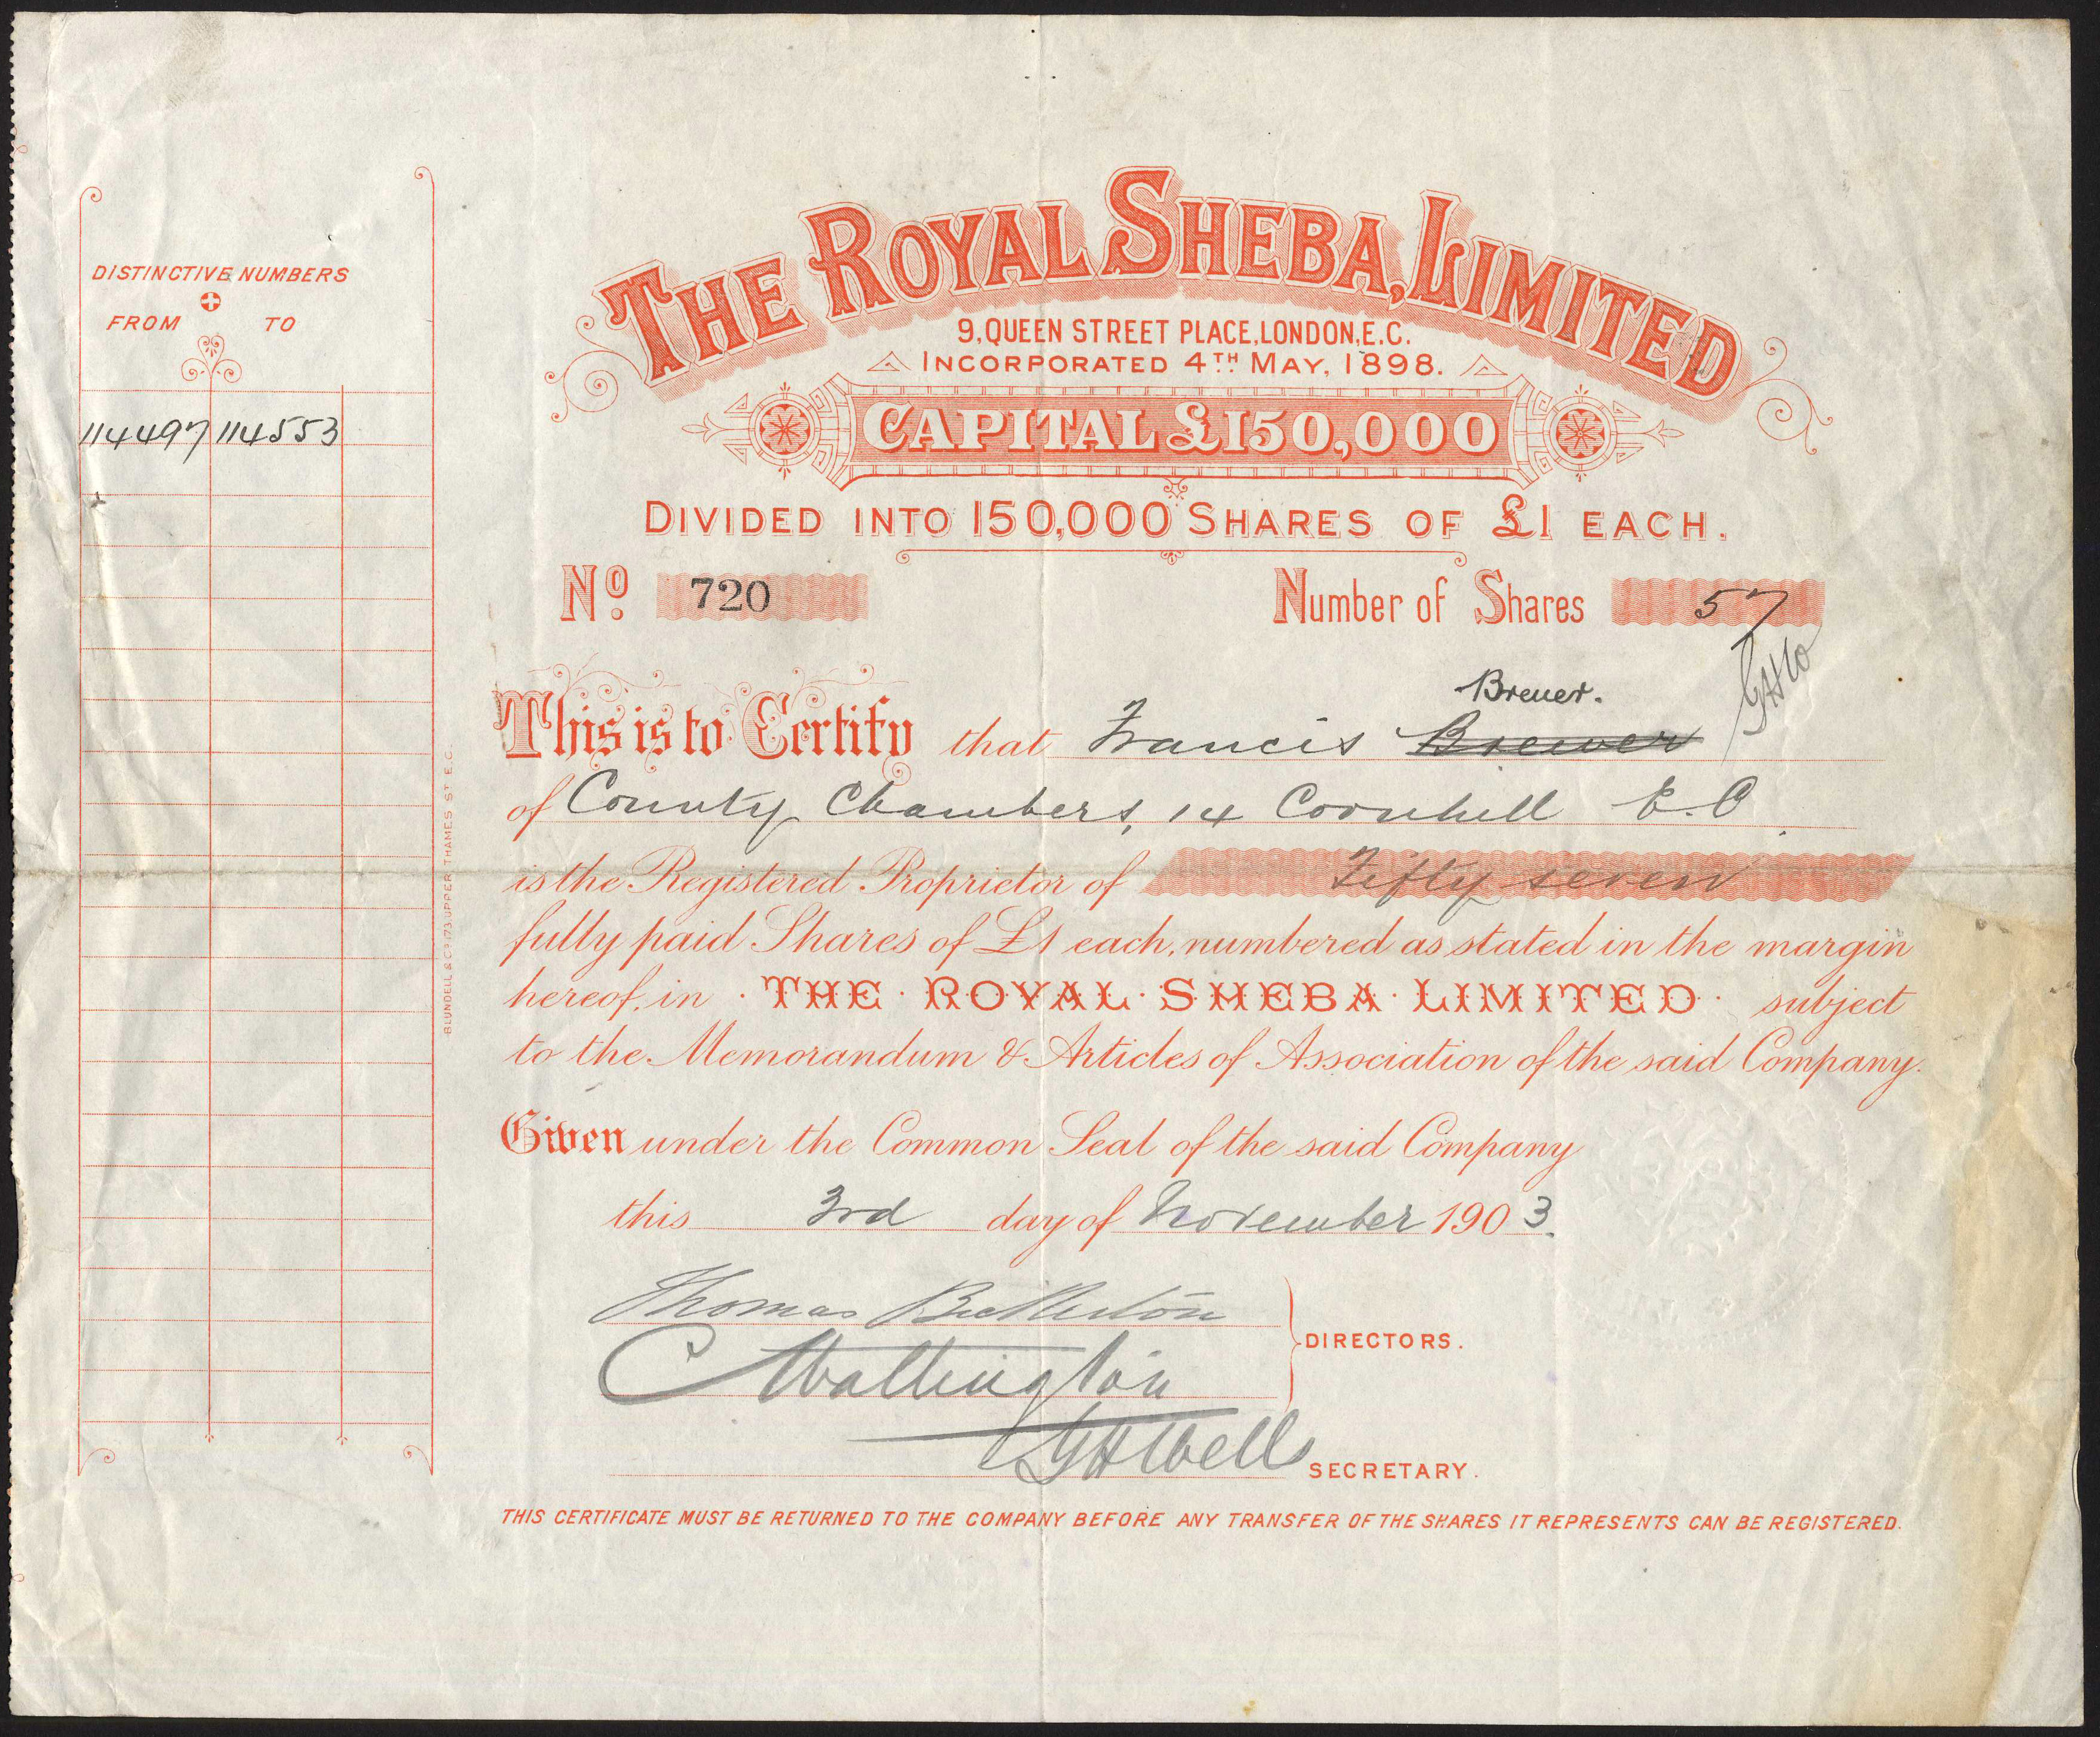 DISTINCTIVE NUMBERS
FROM TO
114497 114553
THE ROYAL SHEBA, LIMITED
9, QUEEN STREET PLACE, LONDON, E.C.
INCORPORATED 4TH MAY, 1898.
CAPITAL £150,000
DIVIDED INTO 150,000 SHARES OF £1 EACH.
No. 720 Number of Shares 57
Breuer.
This is to Certify that Francis Brewer
of County Chambers, 14 Cornhill E.C.
is the Registered Proprietor of Fifty seven
fully paid Shares of £1 each, numbered as stated in the margin
hereof, in · THE · ROYAL · SHEBA · LIMITED · subject
to the Memorandum & Articles of Association of the said Company.
Given under the Common Seal of the said Company
this 3rd day of November 1903.
Thomas
Wallington
DIRECTORS.
SECRETARY.
THIS CERTIFICATE MUST BE RETURNED TO THE COMPANY BEFORE ANY TRANSFER OF THE SHARES IT REPRESENTS CAN BE REGISTERED.
BLUNDELL & CO. 173 UPPER THAMES ST. E.C.